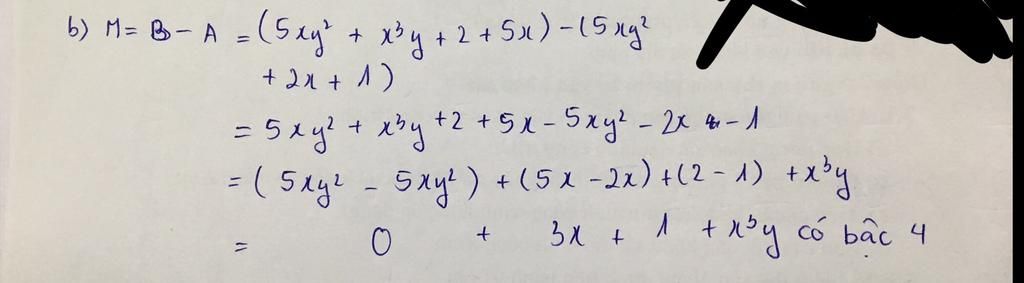 b) M = B - A = (5xy² + x³y + 2 + 5x) - (5xy²
+ 2x + 1)
= 5xy² + x³y + 2 + 5x - 5xy² - 2x - 1
= (5xy² - 5xy²) + (5x - 2x) + (2 - 1) + x³y
= 0 + 3x + 1 + x³y có bậc 4